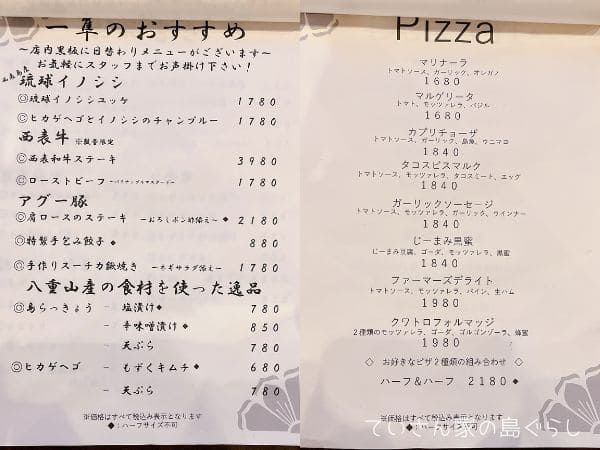 一隼のおすすめ
～店内黒板に日替わりメニューがございます～
お気軽にスタッフまでお声掛け下さい！
琉球イノシシ
◎琉球イノシシユッケ 1780
◎ヒカゲヘゴとイノシシのチャンプルー 1780
西表牛 ※数量限定
◎西表和牛ステーキ 3980
◎ローストビーフ 1780
アグー豚
◎肩ロースのステーキ ～おろしポン酢添え～◆ 2180
◎特製手包み餃子◆ 880
◎手作りスーチカ炙焼き ～ネギサラダ添え～ 1780
八重山産の食材を使った逸品
◎島らっきょう － 塩漬け◆ 780
－ 辛味噌漬け◆ 850
－ 天ぷら 780
◎ヒカゲヘゴ － もずくキムチ◆ 680
－ 天ぷら 780
※価格はすべて税込み表示となります
◆：ハーフサイズ不可
Pizza
マリナーラ
トマトソース、ガーリック、オレガノ
1680
マルゲリータ
トマト、モッツァレラ、バジル
1680
カプリチョーザ
トマトソース、ガーリック、島魚、ウニマヨ
1840
タコスビスマルク
トマトソース、モッツァレラ、タコスミート、エッグ
1840
ガーリックソーセージ
トマトソース、モッツァレラ、ガーリック、ウインナー
1840
じーまみ黒蜜
じーまみ豆腐、ゴーダ、モッツァレラ、黒蜜
1840
ファーマーズデライト
トマトソース、モッツァレラ、パイン、生ハム
1980
クワトロフォルマッジ
2種類のモッツァレラ、ゴーダ、ゴルゴンゾーラ、蜂蜜
1980
◇ お好きなピザ2種類の組み合わせ ◇
ハーフ＆ハーフ 2180◆
※価格はすべて税込み表示となります
◆：ハーフサイズ不可
てぃーだ家の島ぐらし